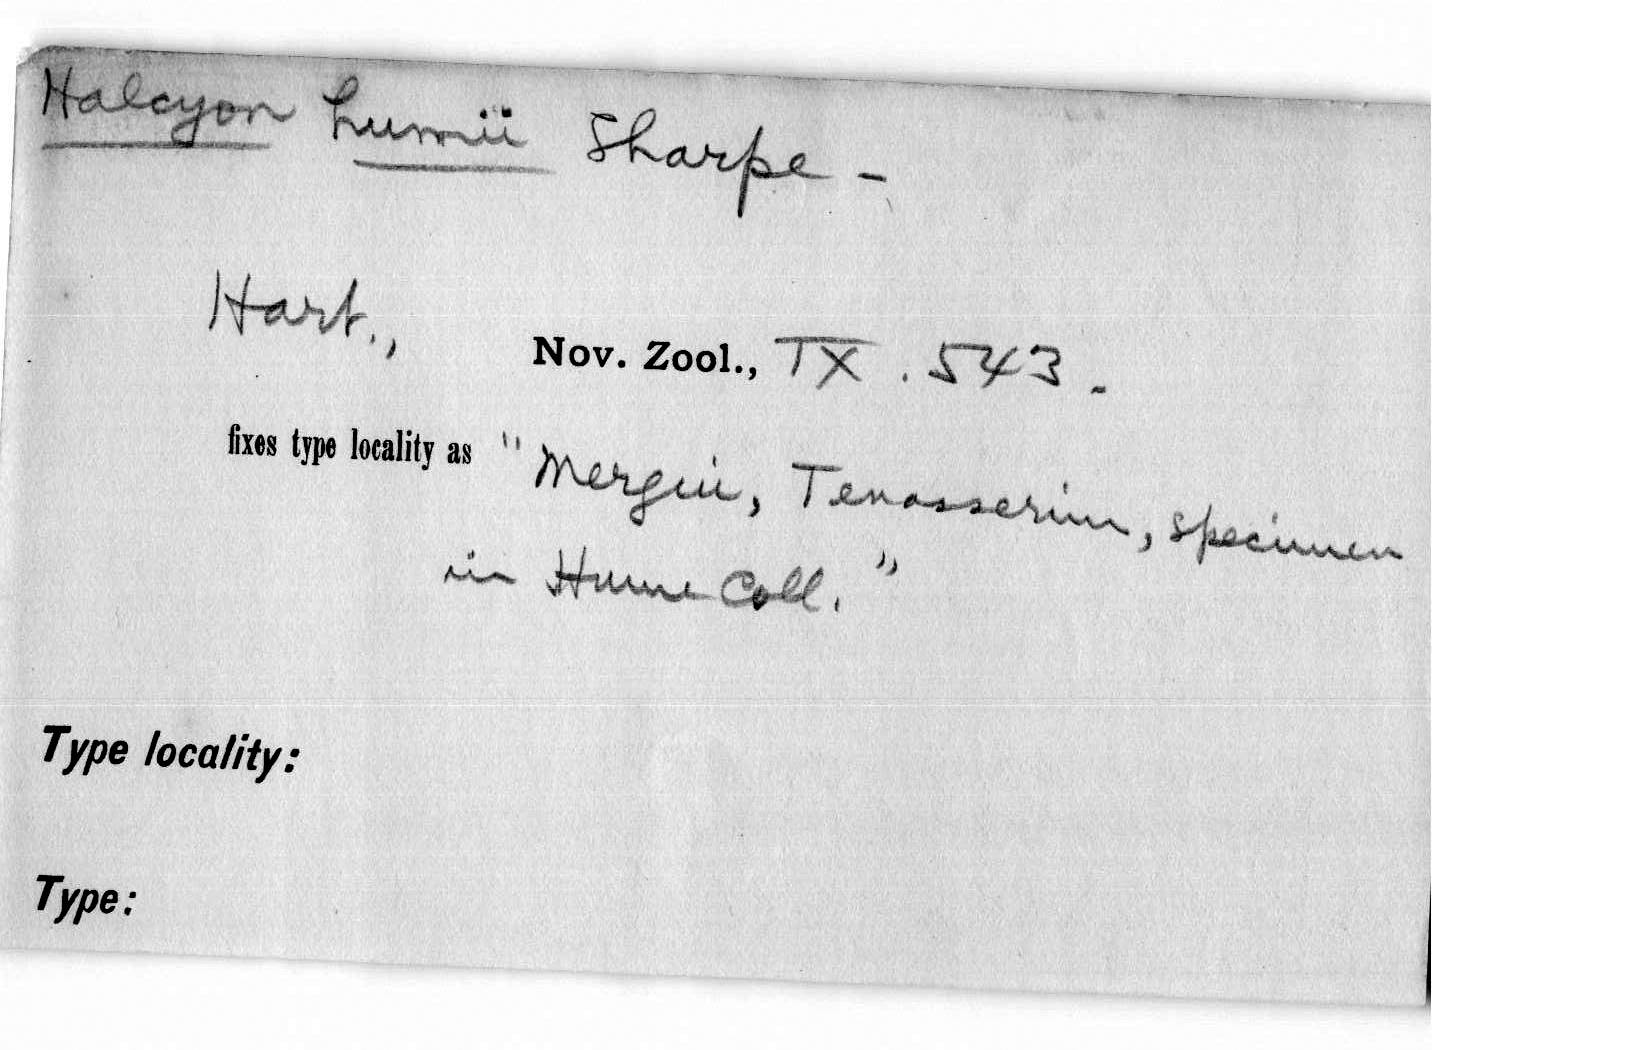 Halcyon humii Sharpe -
Hart., Nov. Zool., IX. 543.
fixes type locality as "Mergui, Tenasserim, specimen
in Hume Coll."
Type locality:
Type: